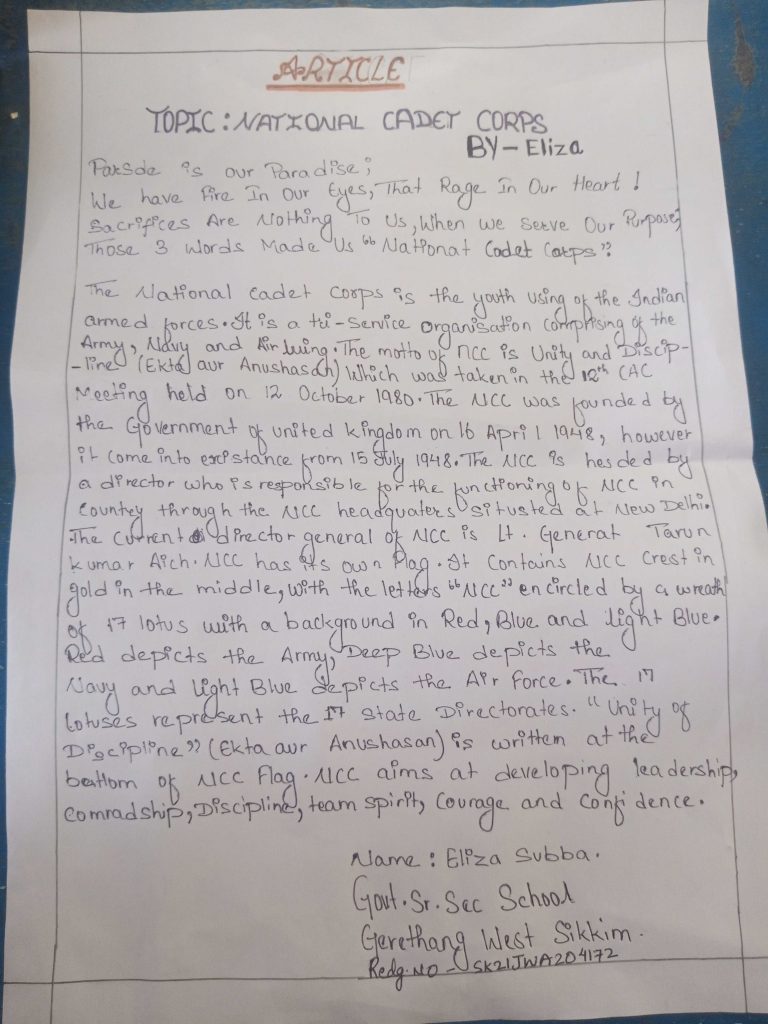 ARTICLE
TOPIC: NATIONAL CADET CORPS
BY- Eliza
Parade is our Paradise;
We have Fire In Our Eyes, That Rage In Our Heart!
Sacrifices Are Nothing To Us, When we Serve Our Purpose,
Those 3 Words Made Us "National Cadet Corps".
The National Cadet Corps is the youth using of the Indian
armed forces. It is a tri-service organisation comprising of the
Army, Navy and Air wing. The motto of NCC is Unity and Discip-
-line (Ekta aur Anushasan) Which was taken in the 12th CAC
Meeting held on 12 October 1980. The NCC was founded by
the Government of united kingdom on 16 April 1948, however
it come into existance from 15 July 1948. The NCC is hesded by
a director who is responsible for the functioning of NCC in
Country through the NCC headquaters situsted at New Delhi.
The current director general of NCC is Lt. General Tarun
Kumar Aich. NCC has its own Flag. It contains NCC crest in
gold in the middle, with the letters "NCC" encircled by a wreath
of 17 lotus with a background in Red, Blue and light Blue.
Red depicts the Army, Deep Blue depicts the
Navy and Light Blue depicts the Air Force. The 17
lotuses represent the 17 State Directorates. "Unity of
Discipline" (Ekta aur Anushasan) is written at the
bottom of NCC Flag. NCC aims at developing leadership,
comradship, Discipline, team spirit, Courage and Confidence.
Name: Eliza Subba.
Govt. Sr. Sec School
Gerethang West Sikkim.
Redg. NO - SK21JWA204172